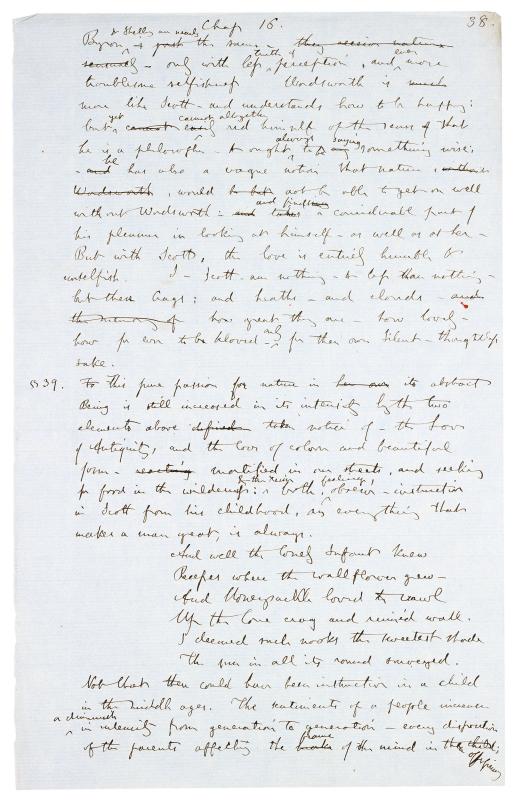 Chap 16. 38.
& Shelley are nearly
Byron is just the same they receive nature
sensuously – only with less truth of perception, and even more
troublesome selfishness. Wordsworth is much
more like Scott – and understands how to be happy:
but yet cannot cannot altogether rid himself of the sense that
he is a philosopher – & ought always to be saying something wise;
– and he has also a vague notion that nature without
Wordsworth, would not be able to get on well
without Wordsworth: and and finds takes a considerable part of
his pleasure in looking at himself – as well as at her –
But with Scott, the love is entirely humble &
unselfish. I – Scott – am nothing – & less than nothing –
but these crags; and heaths – and clouds – and
the memory of how great they are – how lovely –
how for ever to be beloved – only for their own silent – thoughtless
sake.
§ 39. To this pure passion for nature in her own its abstract
Being is still increased in its intensity by the two
elements above defined taken notice of – the love
of Antiquity, and the love of colour and beautiful
form – mortified in our streets, and seeking
for food in the wilderness: & the ruin: both feelings, observe – instinctive
in Scott from his childhood, as everything that
makes a man great, is always.
And well the lonely Infant knew
Recesses where the wallflower grew –
And Honeysuckle loved to crawl
Up the low crag and ruined wall.
I deemed such nooks the sweetest shade
The sun in all its round surveyed.
Not that these could have been instinctive in a child
in the Middle ages. The sentiments of a people increase
or diminish in intensity from generation to generation – every disposition
of the parents affecting the frame of the mind in the child;
offspring